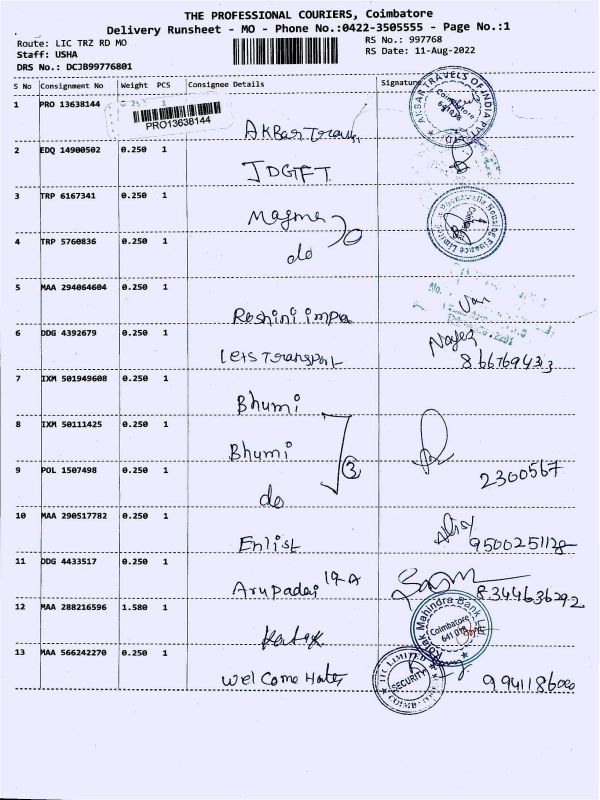 THE PROFESSIONAL COURIERS, Coimbatore
Delivery Runsheet - MO - Phone No.:0422-3505555 - Page No.:1
Route: LIC TRZ RD MO
RS No.: 997768
Staff: USHA
RS Date: 11-Aug-2022
DRS No.: DCJB99776801
S No Consignment No Weight PCS Consignee Details Signature
1 PRO 13638144
PRO13638144
AKBar Travels
AKBAR TRAVELS OF INDIA PVT LTD
Coimbatore
2 EDQ 14900502 0.250 1
JDGFT
3 TRP 6167341 0.250 1
Magma
Poonawalla Housing Finance Limited
4 TRP 5760836 0.250 1
do
5 MAA 294064604 0.250 1
Roshini impa
6 DDG 4392679 0.250 1
Lets Transport
8667694313
7 IXM 501949608 0.250 1
Bhumi
8 IXM 50111425 0.250 1
Bhumi
3
9 POL 1507498 0.250 1
do
2300567
10 MAA 290517782 0.250 1
Enlist
9500251128
11 DDG 4433517 0.250 1
Arupadai 19-A
8344636292
12 MAA 288216596 1.580 1
Kotak
Kotak Mahindra Bank Ltd
Coimbatore
641 018
13 MAA 566242270 0.250 1
Welcome Hotel
SECURITY